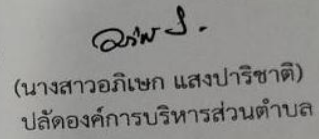 (นางสาวอภิเษก แสงปาริชาติ)
ปลัดองค์การบริหารส่วนตำบล